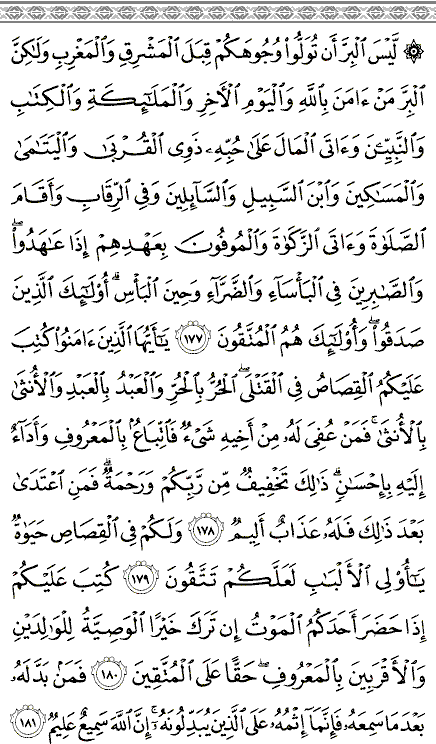 ۞ لَّيْسَ ٱلْبِرَّ أَن تُوَلُّوا۟ وُجُوهَكُمْ قِبَلَ ٱلْمَشْرِقِ وَٱلْمَغْرِبِ وَلَٰكِنَّ
ٱلْبِرَّ مَنْ ءَامَنَ بِٱللَّهِ وَٱلْيَوْمِ ٱلْءَاخِرِ وَٱلْمَلَٰٓئِكَةِ وَٱلْكِتَٰبِ
وَٱلنَّبِيِّـۧنَ وَءَاتَى ٱلْمَالَ عَلَىٰ حُبِّهِۦ ذَوِى ٱلْقُرْبَىٰ وَٱلْيَتَٰمَىٰ
وَٱلْمَسَٰكِينَ وَٱبْنَ ٱلسَّبِيلِ وَٱلسَّآئِلِينَ وَفِى ٱلرِّقَابِ وَأَقَامَ
ٱلصَّلَوٰةَ وَءَاتَى ٱلزَّكَوٰةَ وَٱلْمُوفُونَ بِعَهْدِهِمْ إِذَا عَٰهَدُوا۟ ۖ
وَٱلصَّٰبِرِينَ فِى ٱلْبَأْسَآءِ وَٱلضَّرَّآءِ وَحِينَ ٱلْبَأْسِ ۗ أُو۟لَٰٓئِكَ ٱلَّذِينَ
صَدَقُوا۟ ۖ وَأُو۟لَٰٓئِكَ هُمُ ٱلْمُتَّقُونَ ١٧٧ يَٰٓأَيُّهَا ٱلَّذِينَ ءَامَنُوا۟ كُتِبَ
عَلَيْكُمُ ٱلْقِصَاصُ فِى ٱلْقَتْلَى ۖ ٱلْحُرُّ بِٱلْحُرِّ وَٱلْعَبْدُ بِٱلْعَبْدِ وَٱلْأُنثَىٰ
بِٱلْأُنثَىٰ ۚ فَمَنْ عُفِىَ لَهُۥ مِنْ أَخِيهِ شَىْءٌ فَٱتِّبَاعٌۢ بِٱلْمَعْرُوفِ وَأَدَآءٌ
إِلَيْهِ بِإِحْسَٰنٍ ۗ ذَٰلِكَ تَخْفِيفٌ مِّن رَّبِّكُمْ وَرَحْمَةٌ ۗ فَمَنِ ٱعْتَدَىٰ
بَعْدَ ذَٰلِكَ فَلَهُۥ عَذَابٌ أَلِيمٌ ١٧٨ وَلَكُمْ فِى ٱلْقِصَاصِ حَيَوٰةٌ
يَٰٓأُو۟لِى ٱلْأَلْبَٰبِ لَعَلَّكُمْ تَتَّقُونَ ١٧٩ كُتِبَ عَلَيْكُمْ
إِذَا حَضَرَ أَحَدَكُمُ ٱلْمَوْتُ إِن تَرَكَ خَيْرًا ٱلْوَصِيَّةُ لِلْوَٰلِدَيْنِ
وَٱلْأَقْرَبِينَ بِٱلْمَعْرُوفِ ۖ حَقًّا عَلَى ٱلْمُتَّقِينَ ١٨٠ فَمَنۢ بَدَّلَهُۥ
بَعْدَ مَا سَمِعَهُۥ فَإِنَّمَآ إِثْمُهُۥ عَلَى ٱلَّذِينَ يُبَدِّلُونَهُۥٓ ۚ إِنَّ ٱللَّهَ سَمِيعٌ عَلِيمٌ ١٨١